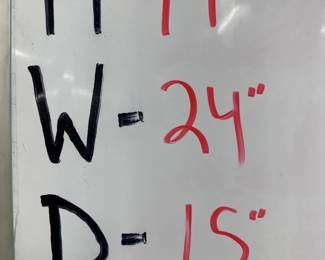 W - 24"
D - 15"